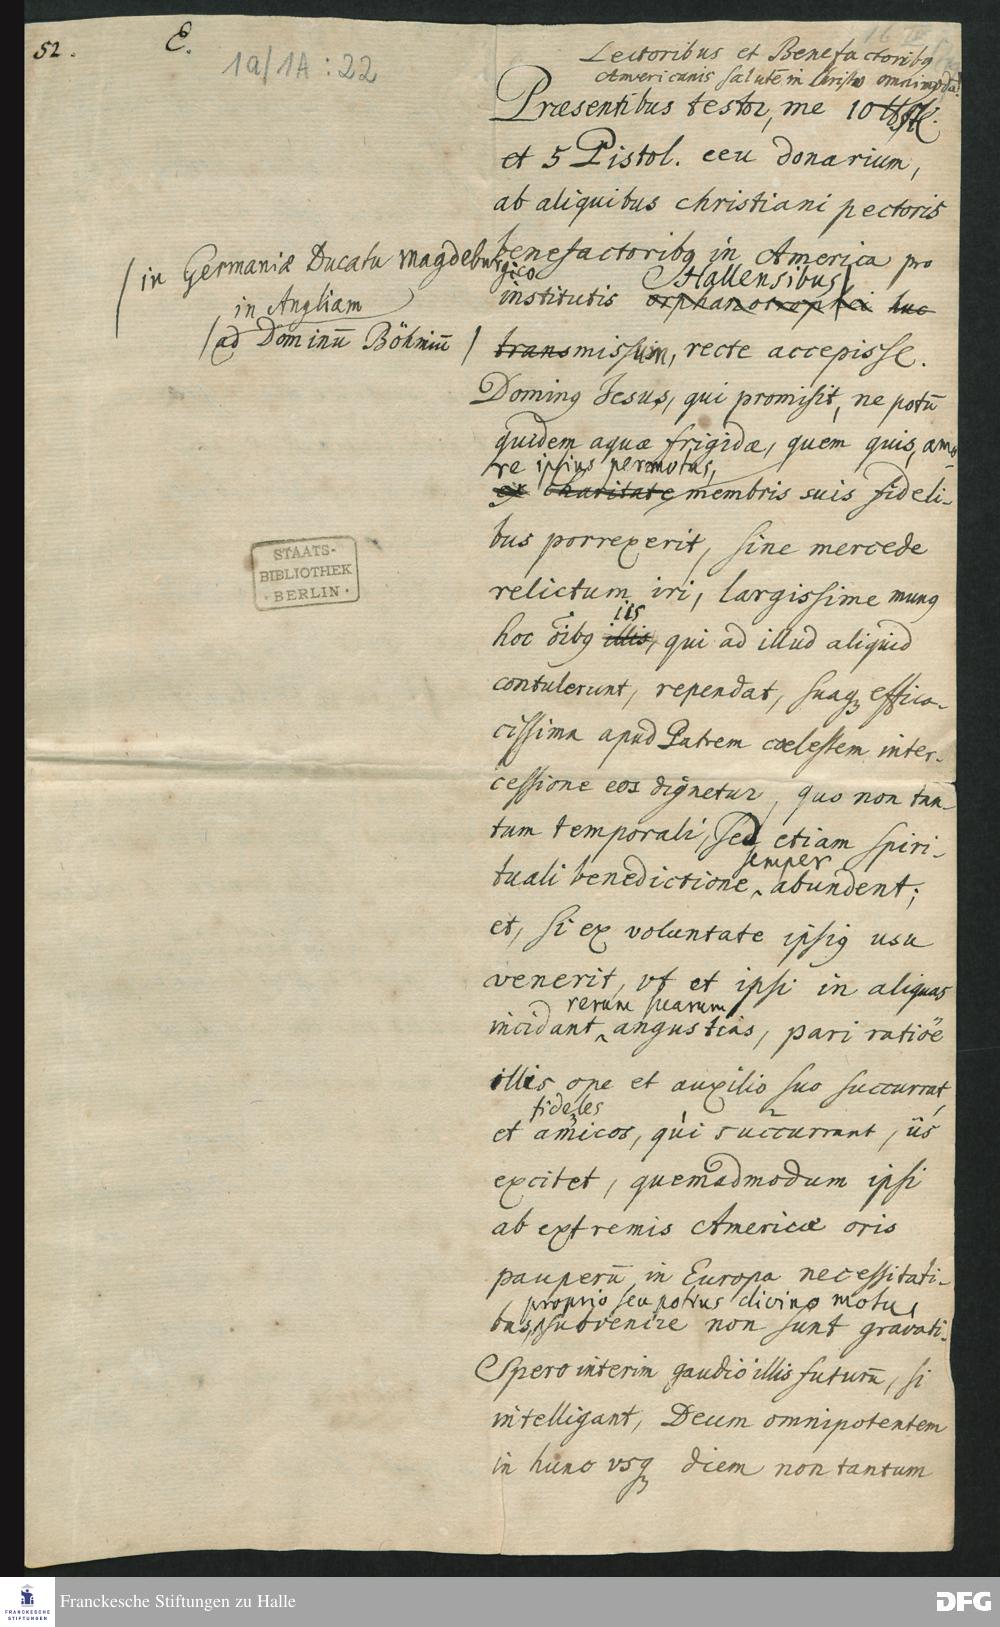 52.
E.
1a/1A : 22
Lectoribus et Benefactoribq
Americanis salutē in Christo omnimodã!
Præsentibus testor, me 10 lb St.
et 5 Pistol. ceu donarium,
ab aliquibus christiani pectoris
benefactoribq in America pro
institutis orphanotrophei huc
Hallensibus
/ in Germaniæ Ducatu Magdeburgico
in Angliam
/ad Dominū Böhmiū /
transmissum, recte accepisse.
Dominq Jesus, qui promisit, ne potū
quidem aquæ frigidæ, quem quis, amo-
re ipsius permotus,
ex charitate membris suis fideli-
bus porrexerit, sine mercede
relictum iri, largissime munq
iis
hoc oībq illis, qui ad illud aliquid
contulerunt, rependat, suaqꝫ effica-
cissima apud Patrem cœlestem inter-
cessione eos dignetur, quo non tan-
tum temporali, sed etiam spiri-
semper
tuali benedictione ‸ abundent;
et, si ex voluntate ipsiq usu
venerit, vt et ipsi in aliquas
rerum suarum
incidant ‸ angustias, pari ratiōe
illis ope et auxilio suo succurrat,
fideles
et amicos, qui succurrant, iis
excitet, quemadmodum ipsi
ab extremis Americæ oris
pauperū in Europa necessitati-
proprio seu potius divino motu,
bus, subvenire non sunt gravati.
Spero interim gaudio illis futurū, si
intelligant, Deum omnipotentem
in hunc vsqꝫ diem non tantum
STAATS-
BIBLIOTHEK
· BERLIN ·
FRANCKESCHE
STIFTUNGEN
Franckesche Stiftungen zu Halle
DFG